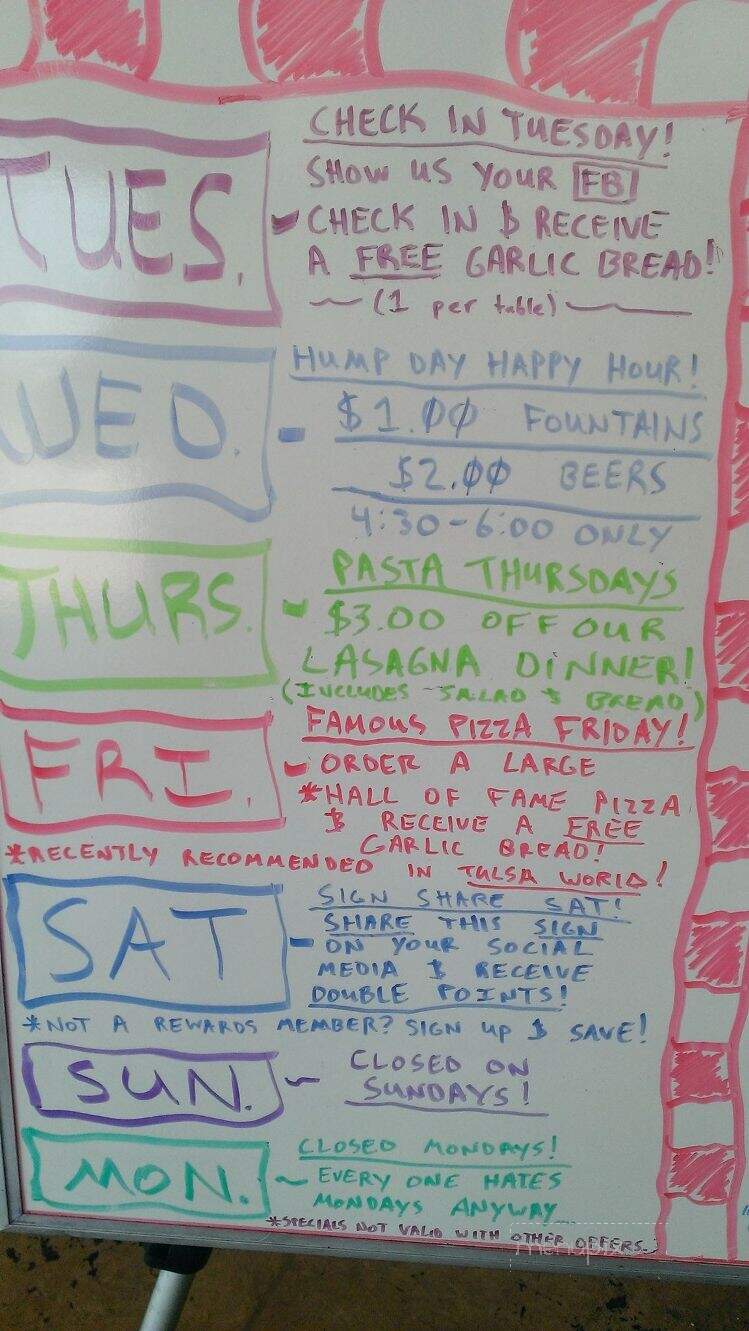 CHECK IN TUESDAY!
SHOW US YOUR FB
TUES. - CHECK IN & RECEIVE
A FREE GARLIC BREAD!
(1 per table)
HUMP DAY HAPPY HOUR!
WED. - $1.00 FOUNTAINS
$2.00 BEERS
4:30-6:00 ONLY
PASTA THURSDAYS
THURS. - $3.00 OFF OUR
LASAGNA DINNER!
(INCLUDES SALAD & BREAD)
FAMOUS PIZZA FRIDAY!
FRI. - ORDER A LARGE
*HALL OF FAME PIZZA
& RECEIVE A FREE
GARLIC BREAD!
*RECENTLY RECOMMENDED IN TULSA WORLD!
SIGN SHARE SAT!
SHARE THIS SIGN
SAT - ON YOUR SOCIAL
MEDIA & RECEIVE
DOUBLE POINTS!
*NOT A REWARDS MEMBER? SIGN UP & SAVE!
SUN. ~ CLOSED ON
SUNDAYS!
CLOSED MONDAYS!
MON. ~ EVERY ONE HATES
MONDAYS ANYWAY...
*SPECIALS NOT VALID WITH OTHER OFFERS.